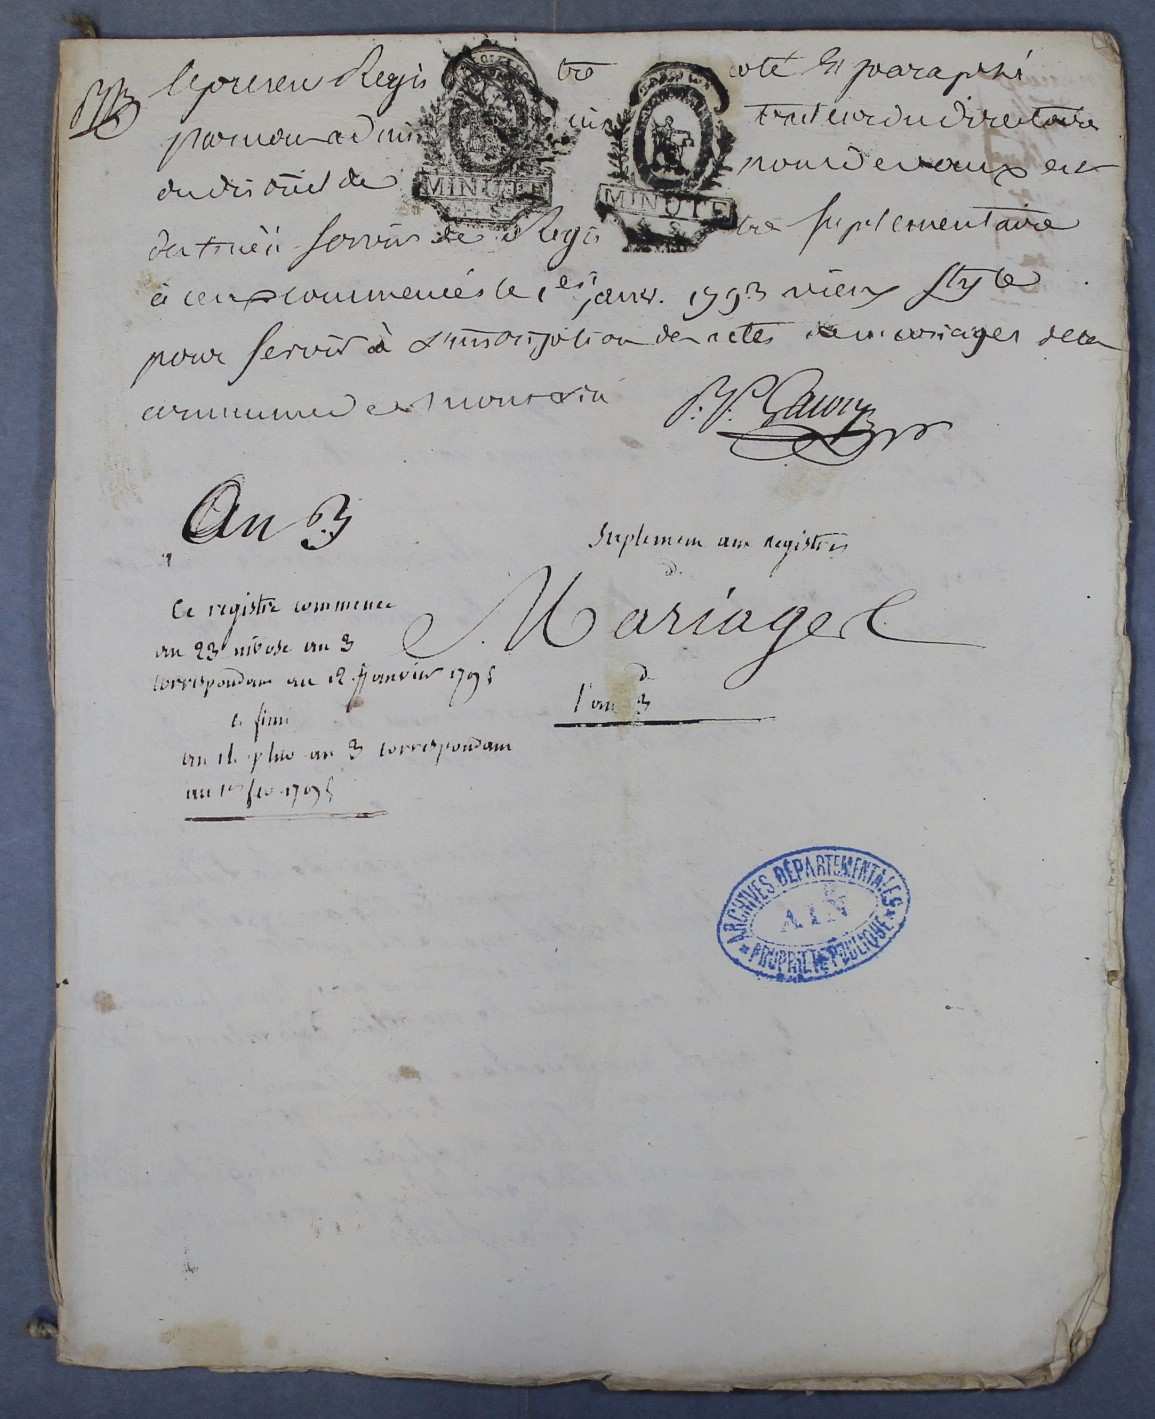 le present Registre coté et paraphé
par nous administrateur du directoire
du district de nous devoux est
destiné à servir de Registre suplementaire
à ceux commencés le 1er janv. 1793 vieux style
pour servir à l'inscription des actes de mariages de la
commune de
An 3
Suplement aux registres
d
Mariages
d
l'an 3
Ce registre commence
au 23 nivose an 3
correspondant au 12 janvier 1795
et fini
au pluv an 3 correspondant
au 1er fev 1795
MINUTE
MINUTE
ARCHIVES DÉPARTEMENTALES
AIN
PROPRIÉTÉ PUBLIQUE